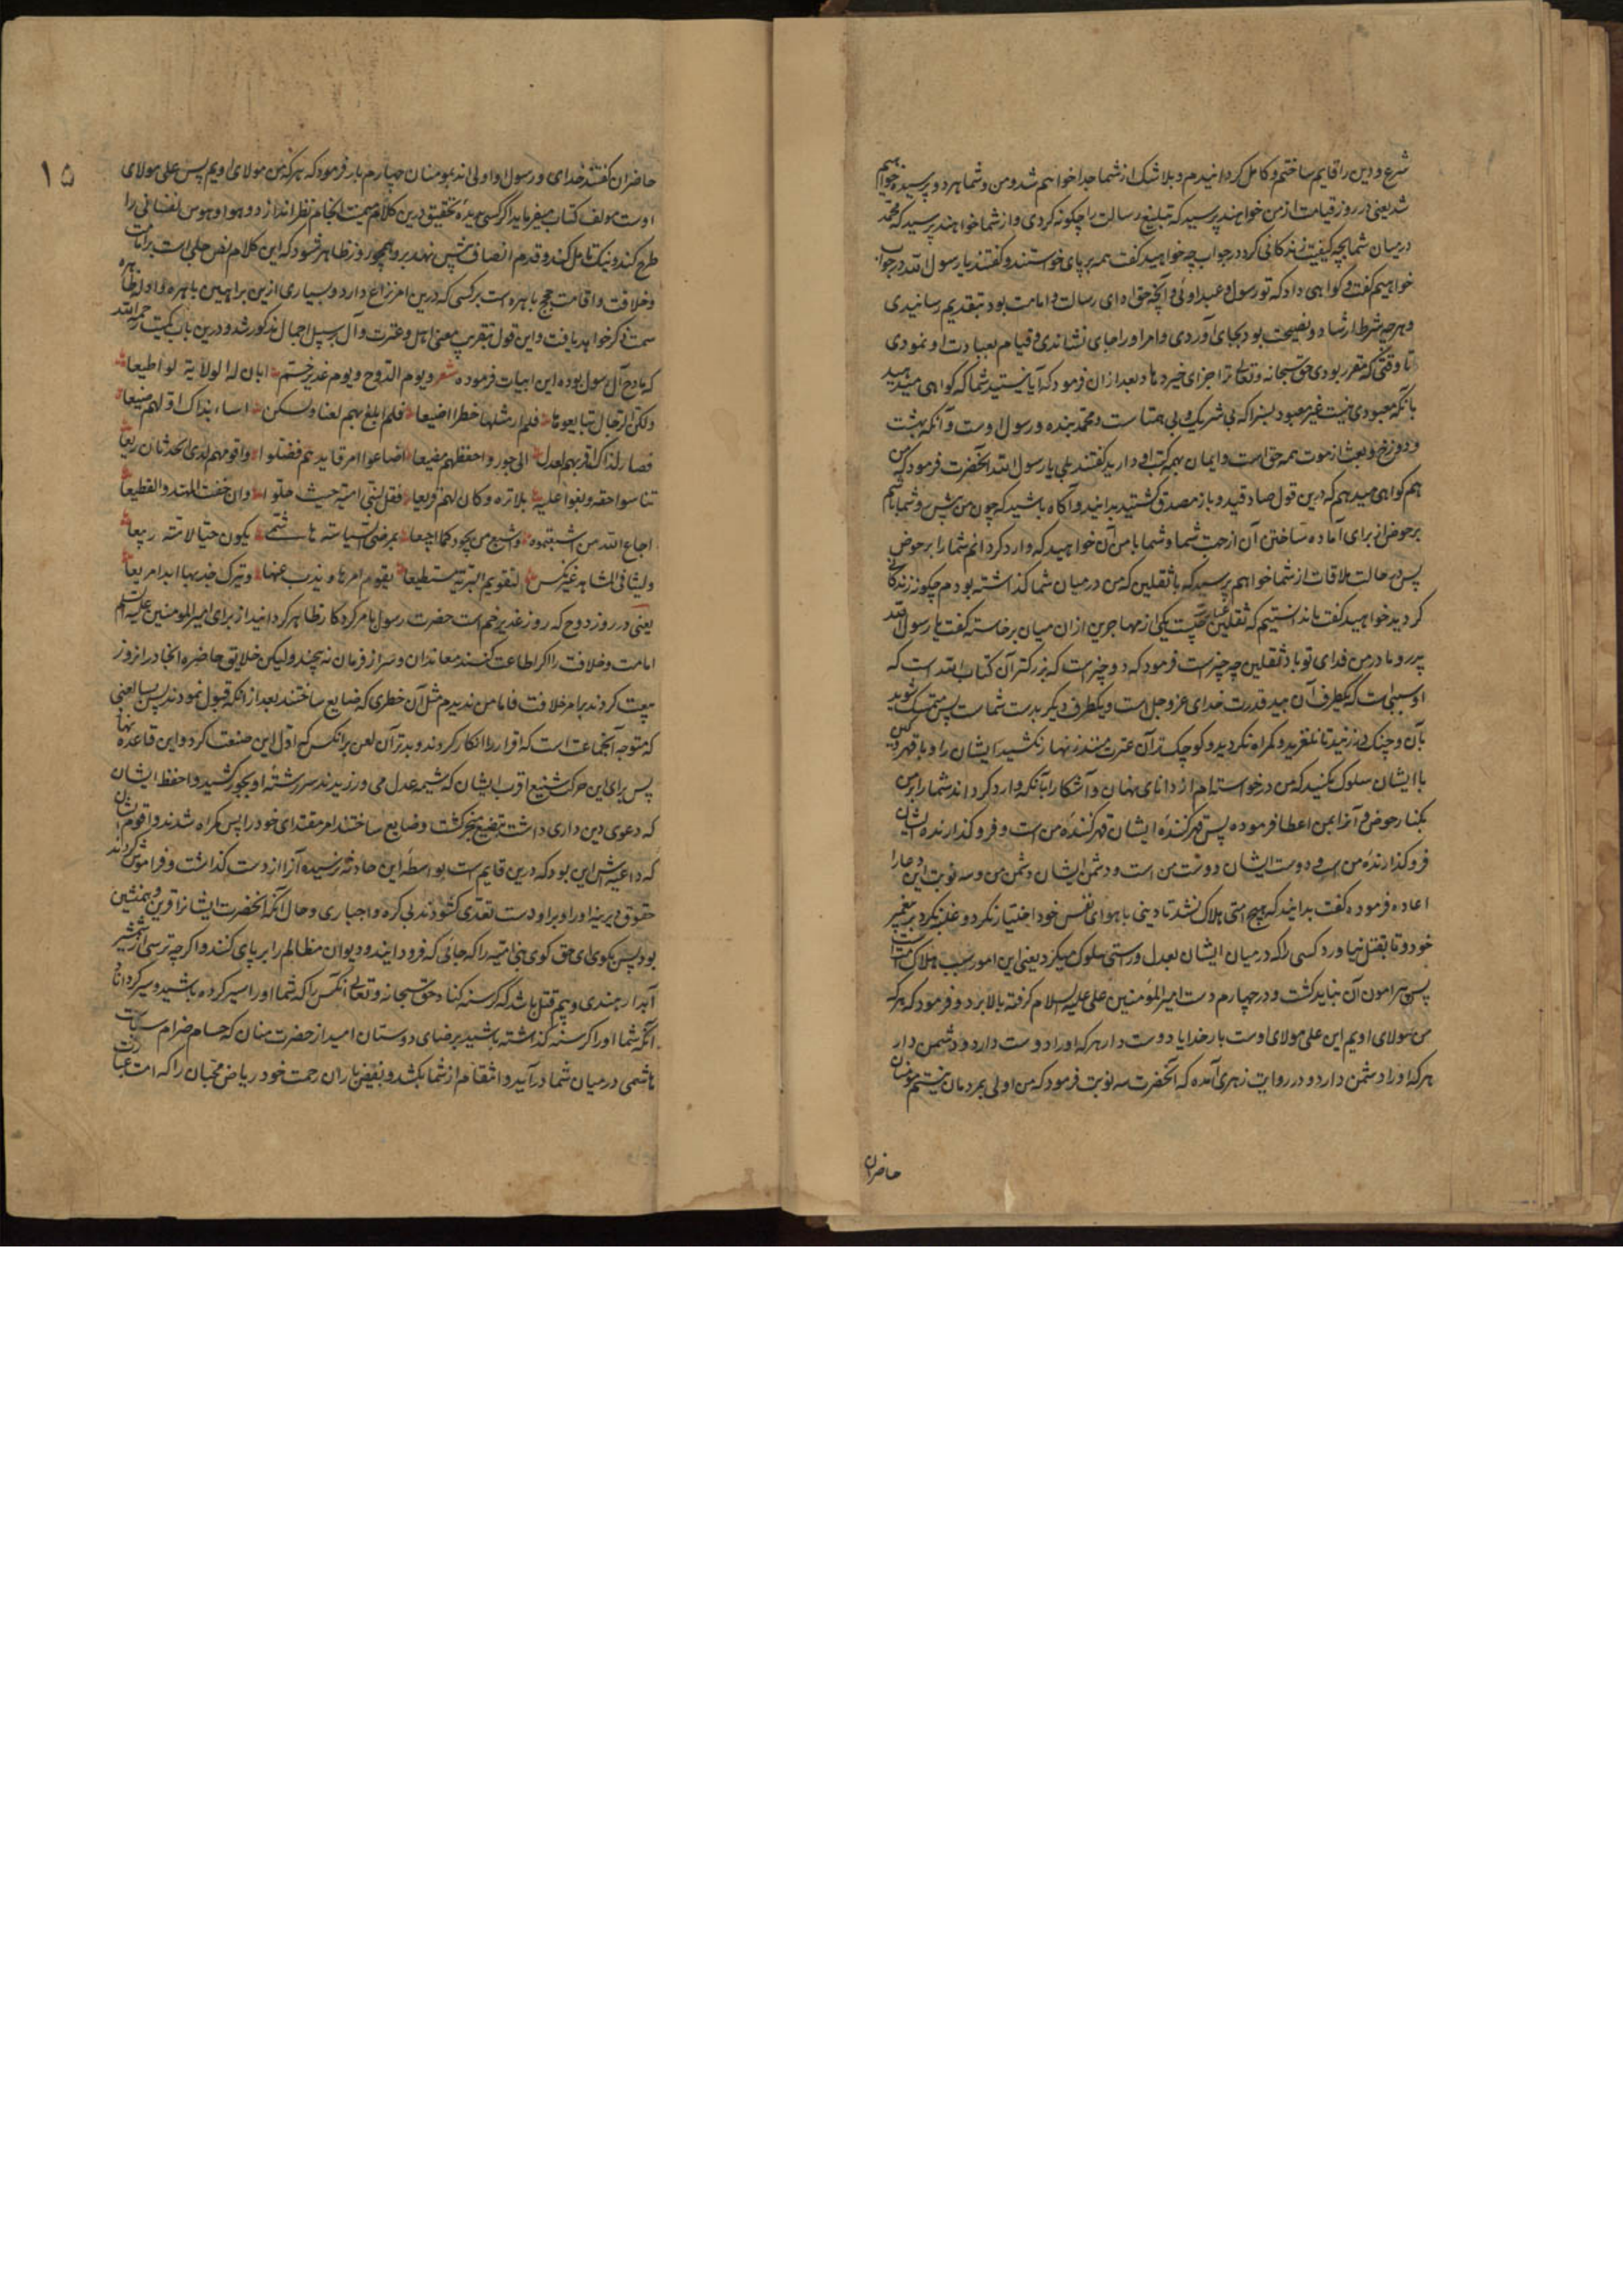 شرع و دین را قایم ساختم و کامل گردانیدم و بلا شک از شما جدا خواهم شد و من و شما هر دو پرسیده خواهیم
شد یعنی در روز قیامت از من خواهند پرسید که تبلیغ رسالت را چگونه کردی و از شما خواهند پرسید که محمد
در میان شما بچه کیفیت زندگانی کرد در جواب چه خواهید گفت همه بر پای خواستند و گفتند یا رسول الله در جواب
خواهیم گفت و گواهی داد که تو رسول و عبد اوئی و آنچه حق ادای رسالت و امامت بود بتقدیم رسانیدی
و هر چه شرط ارشاد و نصیحت بود بجای آوردی و امر او را بجای نشاندی و قیام بعبادت او نمودی
تا وقتی که مقرر بودی حق سبحانه و تعالی ترا جزای خیر دهاد بعد از ان فرمود که آیا نیستید شما که گواهی میدهید
بانکه معبودی نیست غیر معبود بسزا که بی شریک و بی همتاست و محمد بنده و رسول اوست و آنکه بهشت
و دوزخ و بعث از موت همه حق است و ایمان بهمه کتب او دارید گفتند بلی یا رسول الله آنحضرت فرمود که من
هم گواهی میدهم که درین قول صادقید و باز مصدق گشتید بدانید و آگاه باشید که چون من پیش رو شما باشم
بر حوض از برای آماده ساختن آن از جهت شما و شما با من آن خواهید که وارد گردانم شما را بر حوض
پس در حالت ملاقات از شما خواهم پرسید که با ثقلین که من در میان شما گذاشته بودم چگونه زندگانی
کردید خواهید گفت ما ندانستیم که ثقلین چیست یکی از مهاجرین ازان میان برخاسته گفت یا رسول الله
پدر و مادر من فدای تو باد ثقلین چه چیز است فرمود که دو چیز است که بزرگتر آن کتاب الله است که
او سببی است که یکطرف آن بید قدرت خدای عز و جل است و یکطرف دیگر بدست شماست پس متمسک شوید
بآن و چنگ در زنید تا نلغزید و گمراه نگردید و کوچک تر آن عترت منند زنهار نکشید ایشان را و با قهر
با ایشان سلوک نکنید که من درخواسته ام از دانای نهان و آشکارا بآنکه وارد گرداند شما را بر من
بکنار حوض و آنرا بمن اعطا فرموده پس قهر کننده ایشان قهر کننده من است و فرو گذارنده ایشان
فرو گذارنده من است و دوست ایشان دوست من است و دشمن ایشان دشمن من و سه نوبت این دعا را
اعاده فرموده گفت بدانید که هیچ امتی هلاک نشد تا دینی با هوای نفس خود اختیار نکرد و غلبه نکرد بر پیغمبر
خود و تا بقتل نیاورد کسی را که در میان ایشان بعدل و راستی سلوک میکرد یعنی این امور سبب هلاک امت است
پس پیرامون آن نباید گشت و در چهارم دست امیر المؤمنین علی علیه السلام گرفته بالا برد و فرمود که هر که
من مولای اویم این علی مولای اوست بار خدایا دوست دار هر که او را دوست دارد و دشمن دار
هر که او را دشمن دارد و در روایت زهری آمده که آنحضرت سه نوبت فرمود که من اولی بمردمان نیستم مومنان
حاضران
۱۵
حاضران گفتند خدای و رسول او اولی اند بمومنان چهارم بار فرمود که هر که من مولای اویم پس علی مولای
اوست مولف کتاب میفرماید اگر کسی بدیده تحقیق درین کلام میمنت انجام نظر اندازد و هوا و هوس نفسانی را
طرح کند و نیک تامل کند و قدم انصاف پیش نهد بر او همچو روز ظاهر شود که این کلام نص جلی است بر امامت
و خلافت و اقامت حجج باهره است بر کسی که درین امر نزاع دارد و بسیاری ازین براهین باهره و ادله ظاهره
سمت ذکر خواهد یافت و این قول بتقریب معنی اهل و عترت و آل بر سبیل اجمال مذکور شد و درین باب کمیت رحمه الله
که مادح آل رسول بوده این ابیات فرموده شعر ویوم الدوح ویوم غدیر ختم ابان له الولایة لو اطیعا
ولکن الرجال تبایعوها فلم ار مثلها خطرا اضیعا فلم ابلغ بهم لعنا ولکن اساء بذاک اولهم صنیعا
فصار لذاک اقربهم لعدل الی جور واحفظهم مضیعا اضاعوا امر قایدهم فضلوا واقومهم لدی الحدثان ریعا
تناسوا حقه وبغوا علیه بلا تره وکان لهم قریعا فقل لبنی امیه حیث حلوا وان خفت المهند والقطیعا
اجاع الله من اشبعتموه واشبع من بجورکم اجیعا بمرضی السیاسة هاشمی یکون حیا لامته ربیعا
ولیثا فی المشاهد غیر نکس لتقویم البریة مستطیعا یقوم امرها ویذب عنها ویترک جدبها ابدا مریعا
یعنی در روز دوح که روز غدیر خم است حضرت رسول بامر کردگار ظاهر گردانید از برای امیر المومنین علیه السلم
امامت و خلافت را اگر اطاعت کنند معاندان و سر از فرمان نه پیچند ولیکن خلایق حاضره انجا در انروز
بیعت کردند بامر خلافت فاما من ندیدم مثل آن خطری که ضایع ساختند بعد از آنکه قبول نمودند پس لعنی
که متوجه آنجماعت است که اقرار را انکار کردند و بدتر آن لعن بر انکس که اول این صنعت کرد و این قاعده نهاد
پس برای این حرکت شنیع اقرب ایشان که شیمه عدل می ورزیدند سر رشته او بجور کشید و احفظ ایشان
که دعوی دین داری داشت بتضییع منجر گشت و ضایع ساختند امر مقتدای خود را پس گمراه شدند و اقوم ایشان
که داعیه اش این بود که درین قایم است بواسطه این حادثه نرسیده آنرا از دست گذاشت و فراموش کردند
حقوق دیرینه او را و بر او دست تعدی گشودند بی کره و اجباری و حال آنکه آنحضرت ایشانرا قرین و همنشین
بود پس بگوی ای حق گوی بنی امیه را که جائی که فرود آیند و دیوان مظالم را بر پای کنند و اگر چه ترسی از شمشیر
آبدار هندی و بیم قتل باشد که گرسنه کناد حق سبحانه و تعالی آنکس را که شما او را سیر کرده باشید و سیر گرداناد
آنکه شما او را گرسنه گذاشته باشید برضای دوستان امید از حضرت منان که حسام ضرام سیاست
هاشمی در میان شما در آید و انتقام از شما بکشد و بفیض باران رحمت خود ریاض محبان را که امت